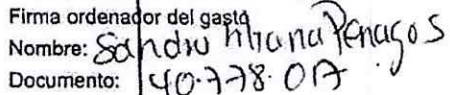 Firma ordenador del gasto
Nombre: Sandra Penagos
Documento: 40.778.017